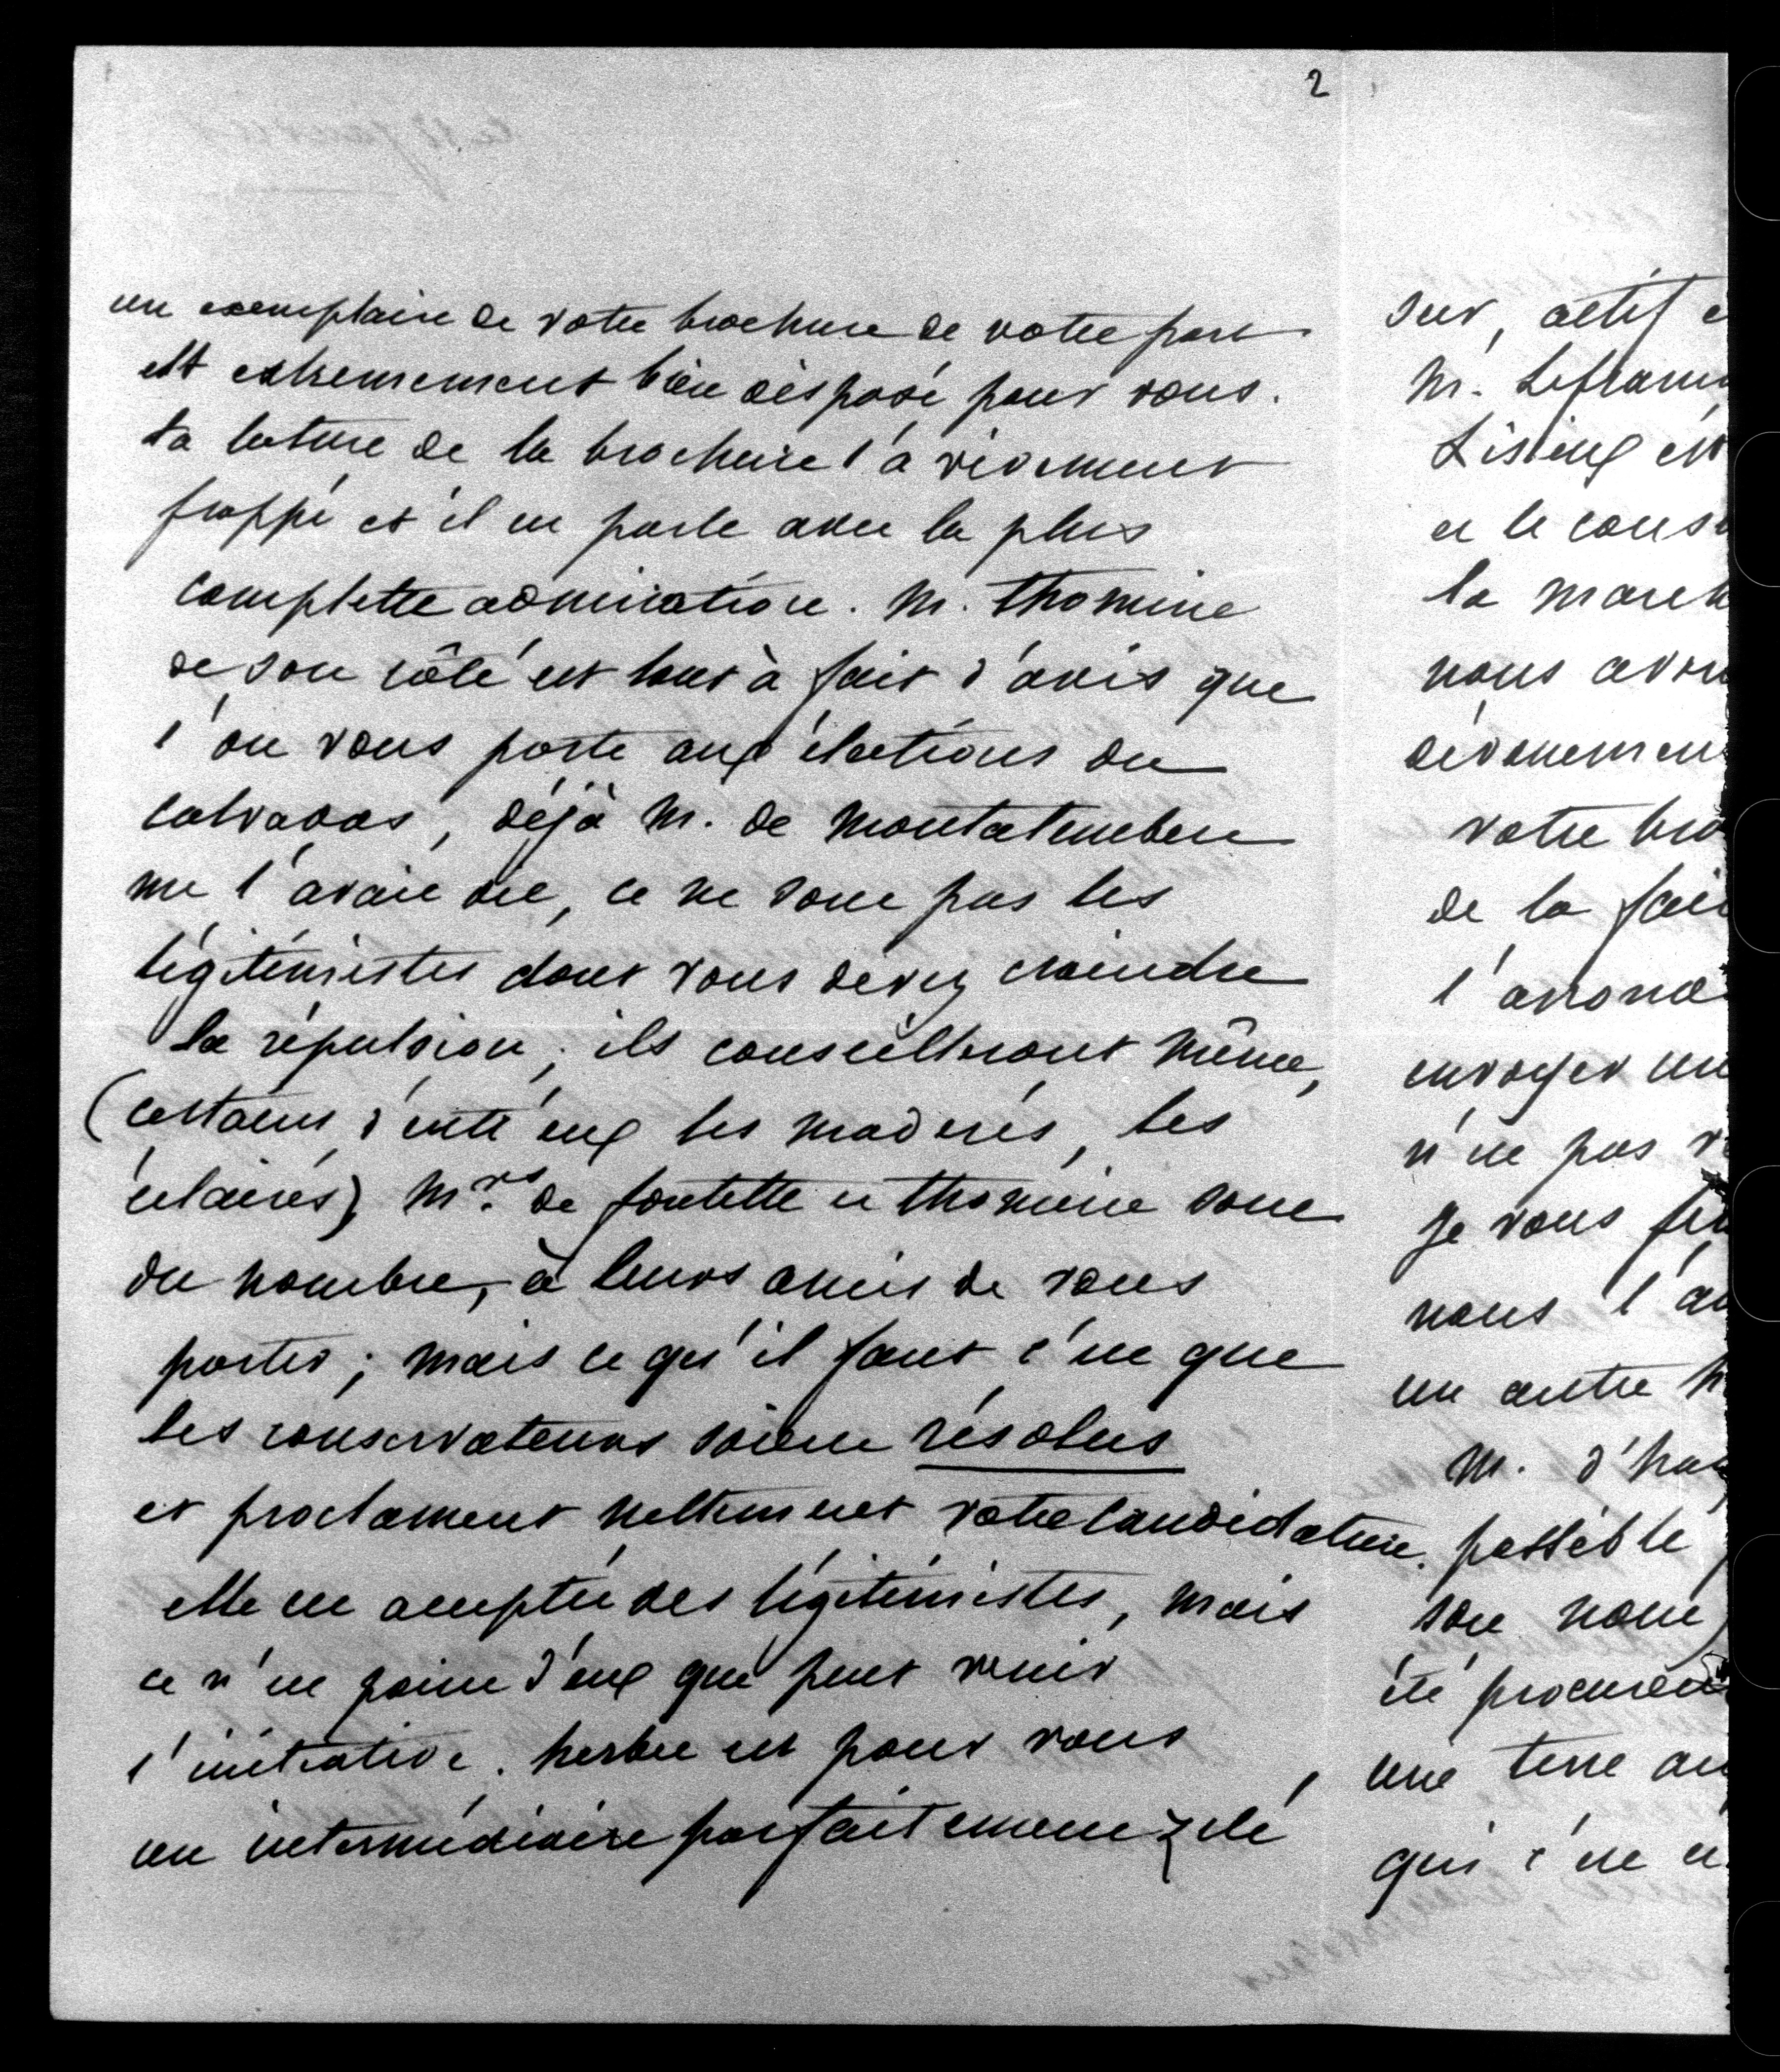 2
un exemplaire de votre brochure de votre part
est extremement bien disposé pour vous.
La lecture de la brochure l'a vivement
frappé et il en parle avec la plus
complette admiration. M. Thomine
de son côté est tout à fait d'avis que
l'on vous porte aux élections du
calvados, déjà M. de Montalembert
me l'avait dit, ce ne sont pas les
légitimistes dont vous devez craindre
la répulsion; ils conseilleront même,
(certains d'entr'eux les modérés, les
éclairés) Mrs. de fontette et thomine sont
du nombre, à leurs amis de vous
porter; mais ce qu'il faut c'est que
les conservateurs soient résolus
et proclament nettement votre candidature.
elle est acceptée des légitimistes, mais
ce n'est point d'eux que peut venir
l'initiative. herbert est pour vous
un intermédiaire parfaitement zélé
sur, actif e
M. Lefran
Lisieux est
et le cons
la march
nous avon
dévouemen
votre bro
de la fai
l'arrond
envoyer un
n'est pas
Je vous
nous l'a
un autre
M. d'ha
possible
son nom
été procureu
une terre au
qui c'est